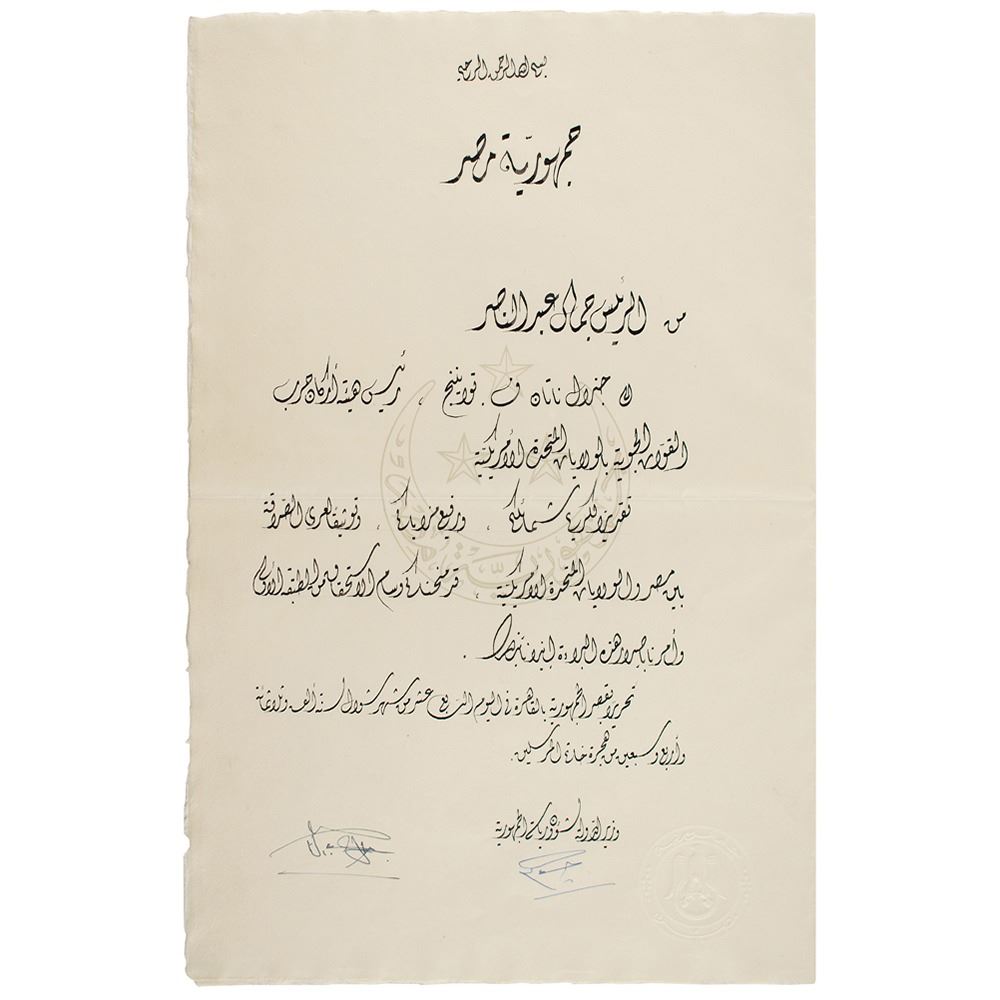 بسم الله الرحمن الرحيم
جمهورية مصر
من الرئيس جمال عبد الناصر
إلى جنرال ناتان ف. تويننج ، رئيس هيئة أركان حرب
القوات الجوية بالولايات المتحدة الأمريكية
تقديرا لكريم شمائلكم ، ورفيع مزاياكم ، وتوثيقا لعرى الصداقة
بين مصر والولايات المتحدة الأمريكية ، قد منحناكم وسام الاستحقاق من الطبقة الأولى
وأمرنا بإصدار هذه البراءة إيذانا بذلك .
تحريرا بقصر الجمهورية بالقاهرة في اليوم الرابع عشر من شهر شوال سنة ألف وثلاثمائة
وأربع وسبعين من هجرة خاتم المرسلين .
وزير الدولة لشئون رياسة الجمهورية